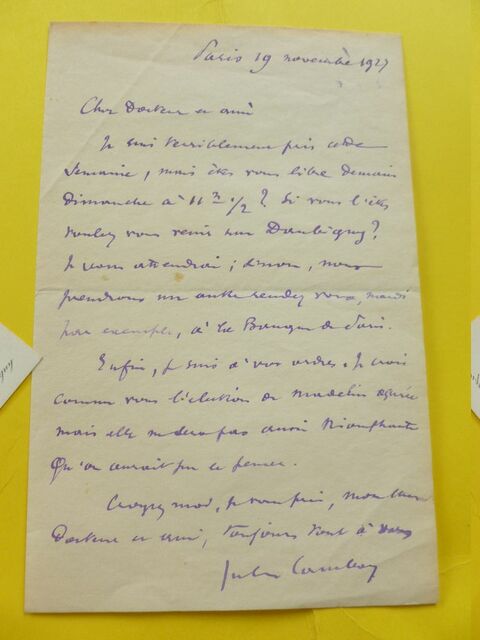 Paris 19 novembre 1927
Cher Docteur et ami
Je suis terriblement pris cette
semaine, mais êtes vous libre demain
Dimanche à 11 h 1/2 ? Si vous l'êtes
voulez vous venir rue Daubigny ?
Je vous attendrai ; sinon, nous
prendrons un autre rendez vous, mardi
par exemple, à la Banque de Paris.
Enfin, je suis à vos ordres. Je crois
comme vous l'élection de Madelin assurée
mais elle ne sera pas aussi triomphante
qu'on aurait pu le penser.
Croyez moi, je vous prie, mon cher
Docteur et ami, toujours tout à vous
Jules Cambon